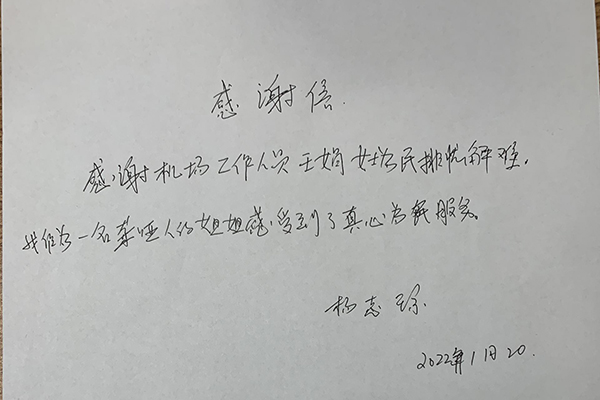 感谢信.
感谢机场工作人员王娟女士为民排忧解难.
我作为一名聋哑人的姐姐感受到了真心为民服务。
杨志琼.
2022年1月20.